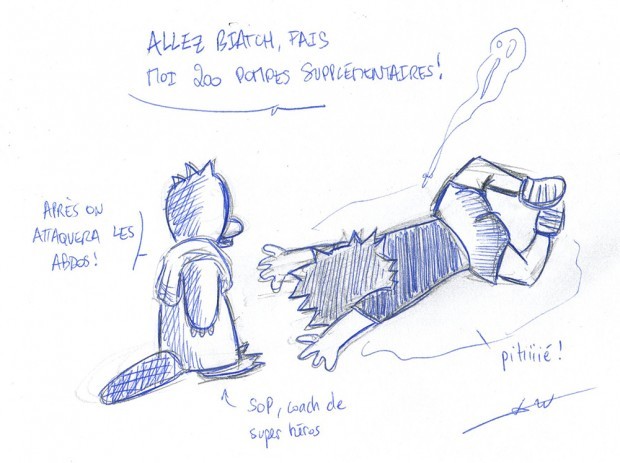 ALLEZ BIATCH, FAIS
MOI 200 POMPES SUPPLÉMENTAIRES!
APRÈS ON
ATTAQUERA LES
ABDOS!
pitiiié!
SOP, coach de
super héros